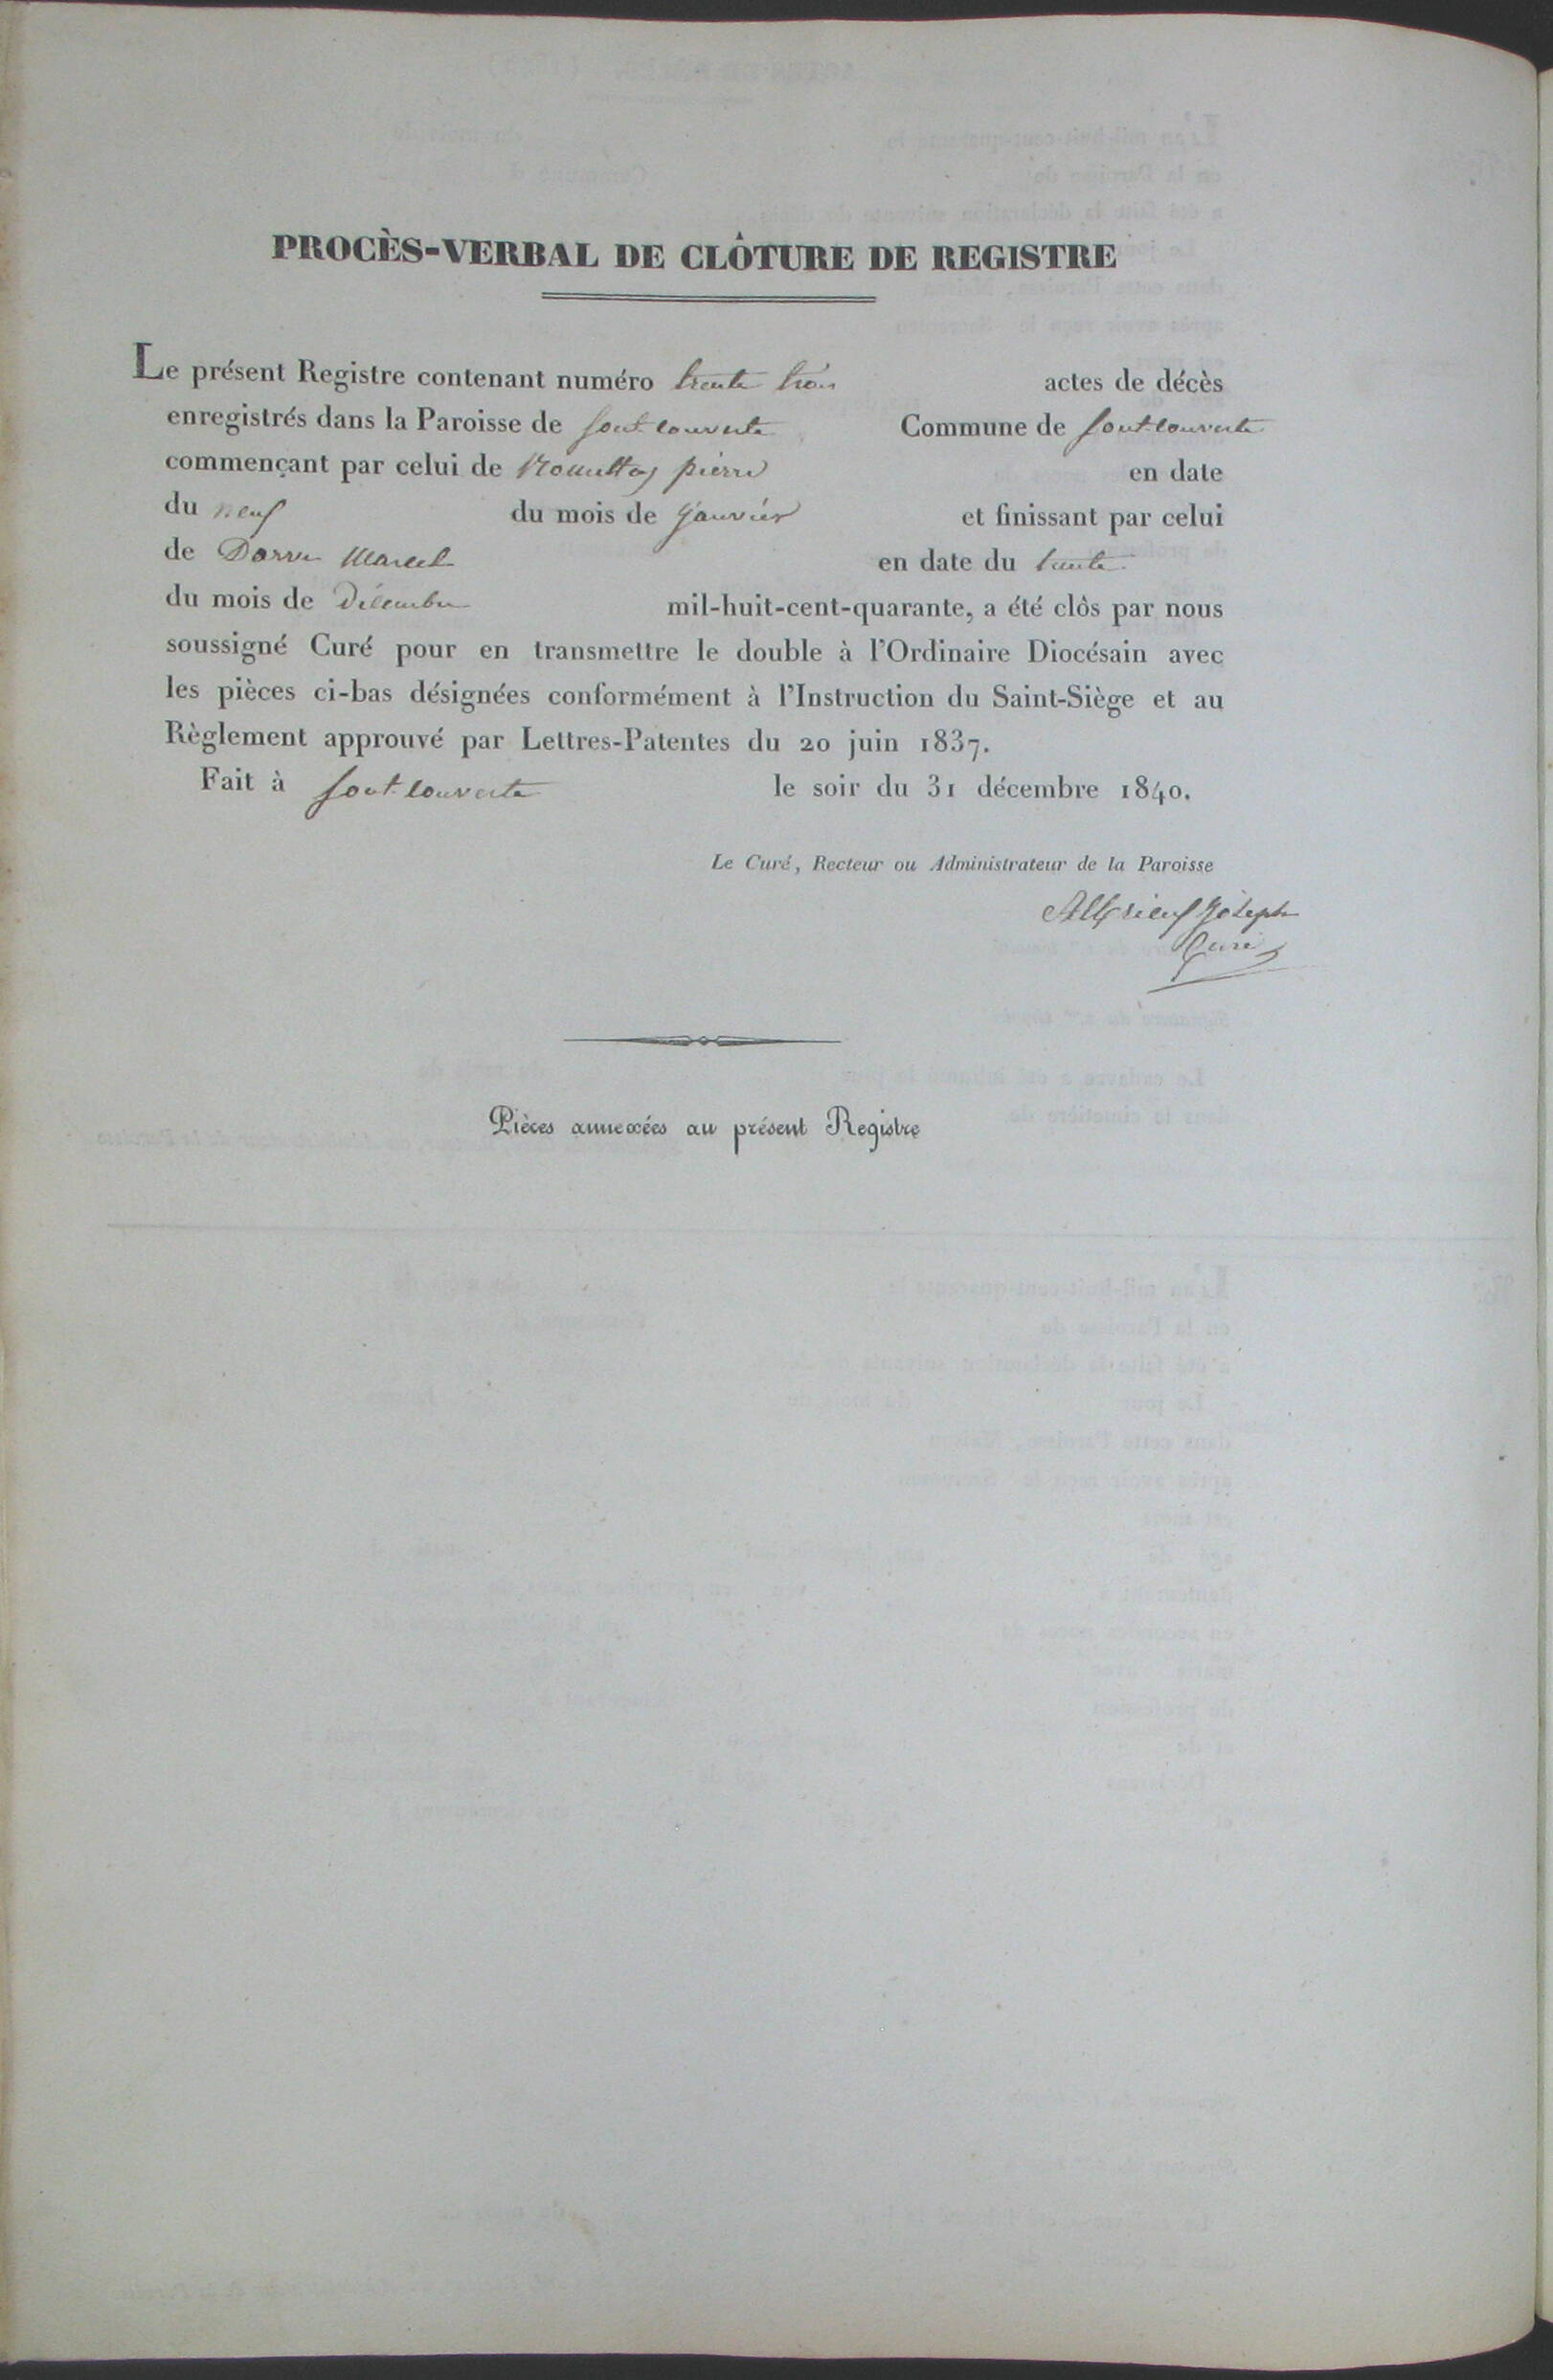 PROCÈS-VERBAL DE CLÔTURE DE REGISTRE
Le présent Registre contenant numéro trente trois actes de décès
enregistrés dans la Paroisse de font-couverte Commune de font-couverte
commençant par celui de pierre en date
du neuf du mois de janvier et finissant par celui
de Marcel en date du trente
du mois de Décembre mil-huit-cent-quarante, a été clòs par nous
soussigné Curé pour en transmettre le double à l'Ordinaire Diocésain avec
les pièces ci-bas désignées conformément à l'Instruction du Saint-Siège et au
Règlement approuvé par Lettres-Patentes du 20 juin 1837.
Fait à font-couverte le soir du 31 décembre 1840.
Le Curé, Recteur ou Administrateur de la Paroisse
Joseph
Curé
Pièces annexées au présent Registre